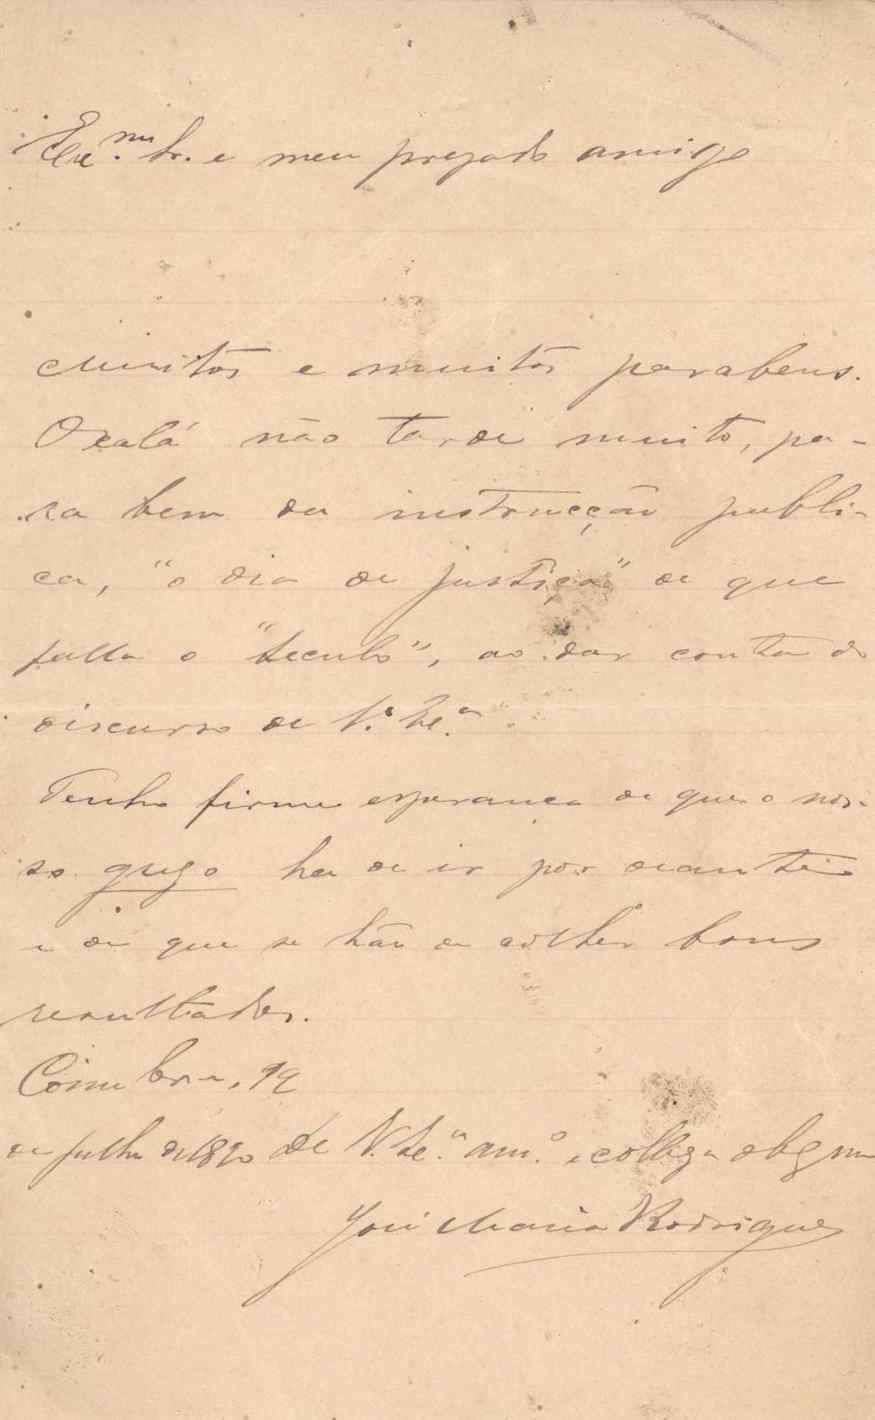 Ex.mo Sr. e meu prezado amigo
Muitos e muitos parabens.
Oxalá não tarde muito, pa-
ra bem da instrucção publi-
ca, "o dia de justiça" de que
falla o "Seculo", ao dar conta do
discurso de V.ª Ex.ª
Tenho firme esperança de que o nos-
so grego ha de ir por deante
e de que se hão de colher bons
resultados.
Coimbra, 19
de julho de 1890 De V. Ex.ª am.º e collega obgmo
José Maria Rodrigues